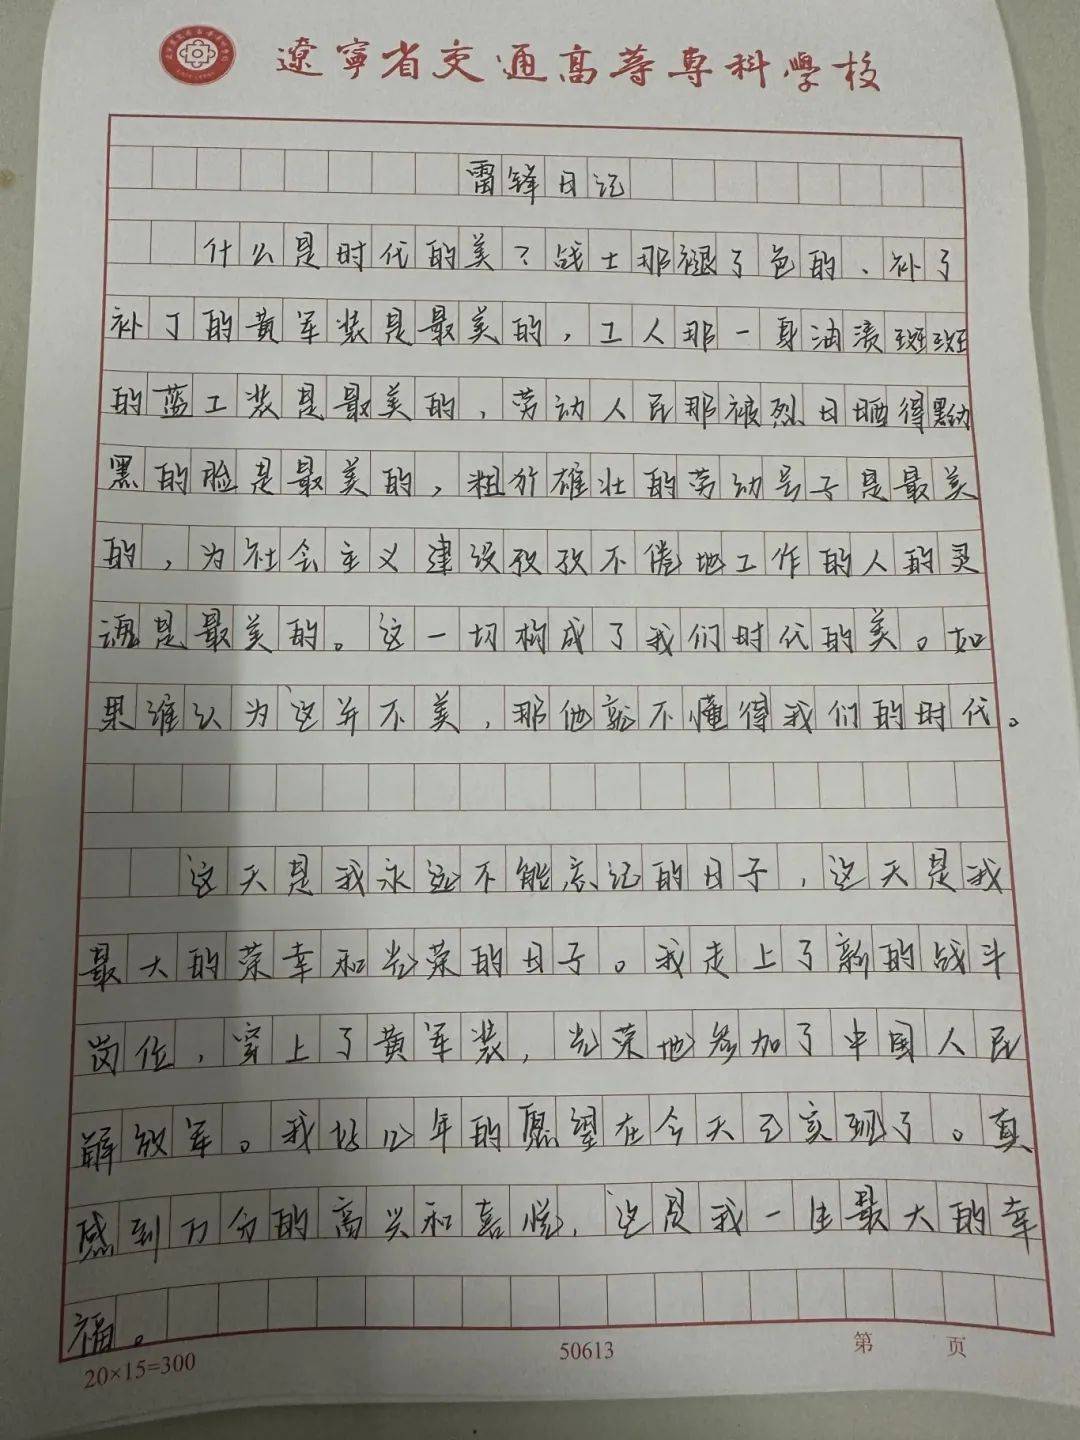 遼寧省交通高等專科學校
雷锋日记
什么是时代的美？战士那褪了色的、补了
补丁的黄军装是最美的，工人那一身油渍斑斑
的蓝工装是最美的，劳动人民那被烈日晒得黝
黑的脸是最美的，粗犷雄壮的劳动号子是最美
的，为社会主义建设孜孜不倦地工作的人的灵
魂是最美的。这一切构成了我们时代的美。如
果谁认为这并不美，那他就不懂得我们的时代。
这天是我永远不能忘记的日子，这天是我
最大的荣幸和光荣的日子。我走上了新的战斗
岗位，穿上了黄军装，光荣地参加了中国人民
解放军。我好几年的愿望在今天已实现了。真
感到万分的高兴和喜悦，这是我一生最大的幸
福。
20×15=300 50613 第 页